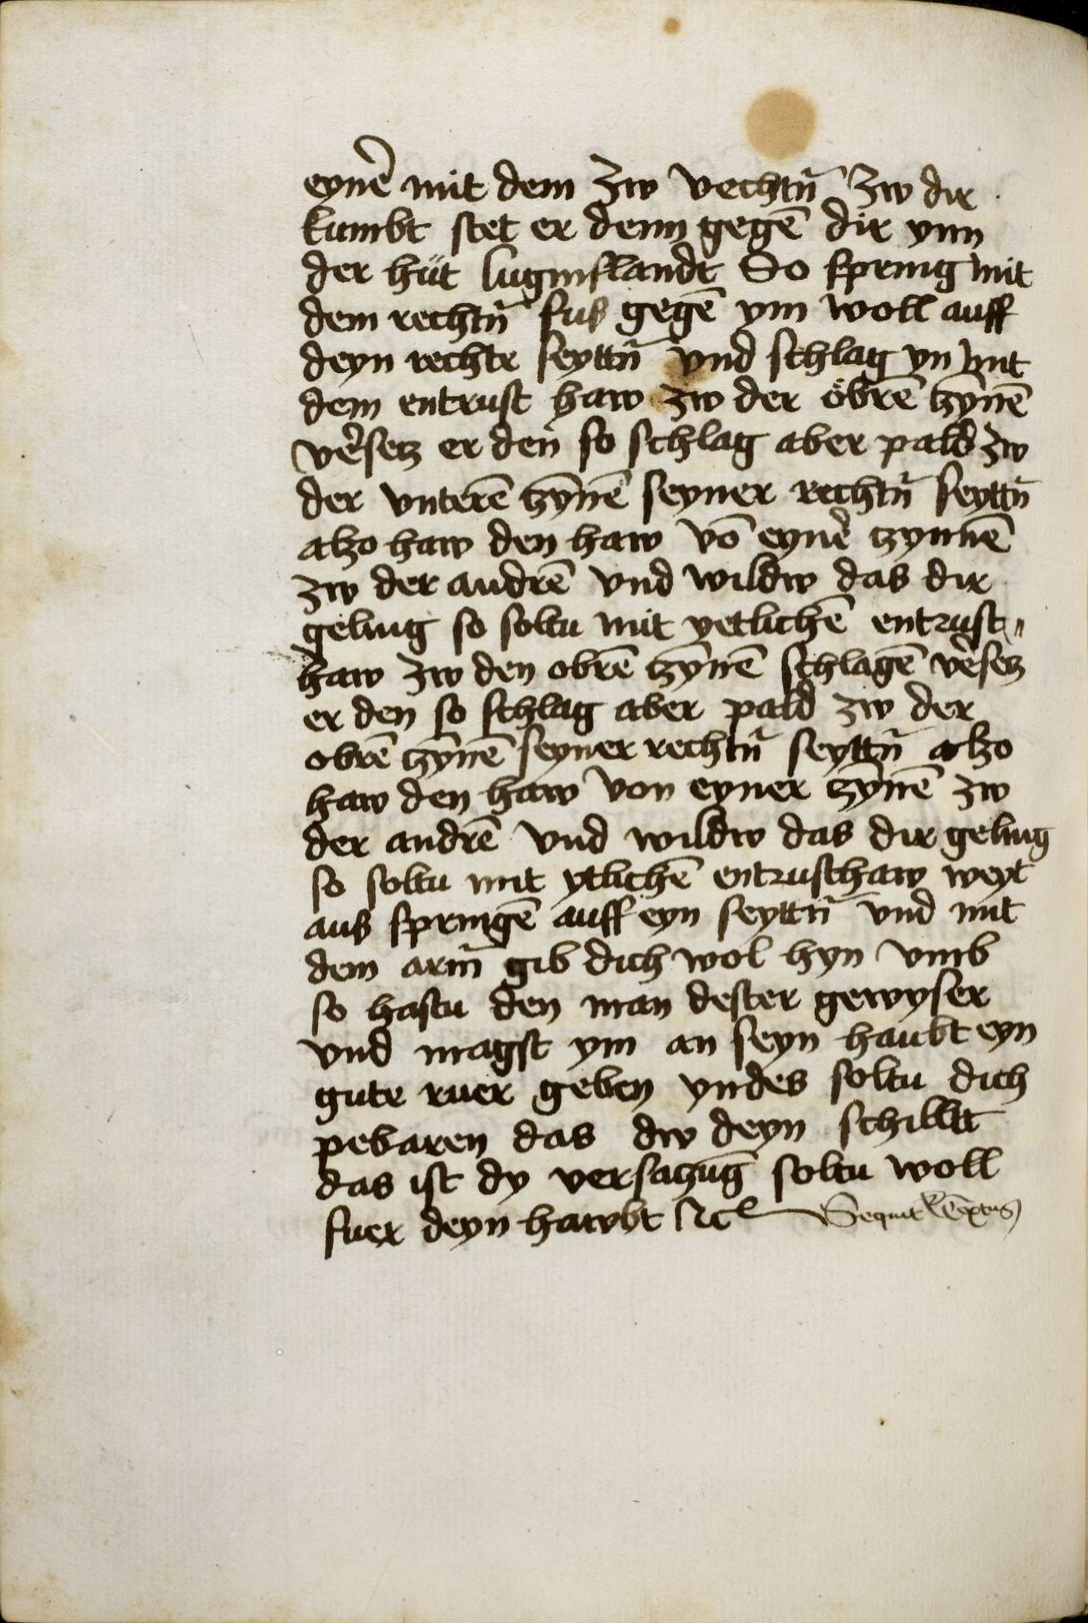 eynē mit dem zw vechtn̄ zw dir
kumbt stet er denn gegē dir ynn
der hüt luginslandt So spring mit
dem rechtn̄ fus gegē ym woll auff
deyn rechte seyttn̄ vnd schlag yn mit
dem entrust haw zw der öbrē tzȳnē
v̄esetz er den so schlag aber pald zw
der vnterē tzȳnē seyner rechtn̄ seyttn̄
alzo haw den haw vō eynē tzynnē
zw der andrē vnd wildw das dir
geling so soltu mit yetlichē entrust„
haw zw den obrē tzȳnē schlagē v̄esetz
er den so schlag aber pald zw der
obrē tzȳnē seyner rechtn̄ seyttn̄ alzo
haw den haw von eyner tzȳnē zw
der andrē vnd wildw das dir geling
so soltu mit ytlichē entrusthaw weyt
aus springē auff eyn seyttn̄ vnd mit
dem arm̄ gib dich wol hyn vmb
so hastu den man dester gewyser
vnd magst ym an seyn haubt eyn
gute ruer geben yndes soltu dich
pebaren das dw deyn schilltt
das ist dy versatzūg soltu woll
fuer deyn hawbt